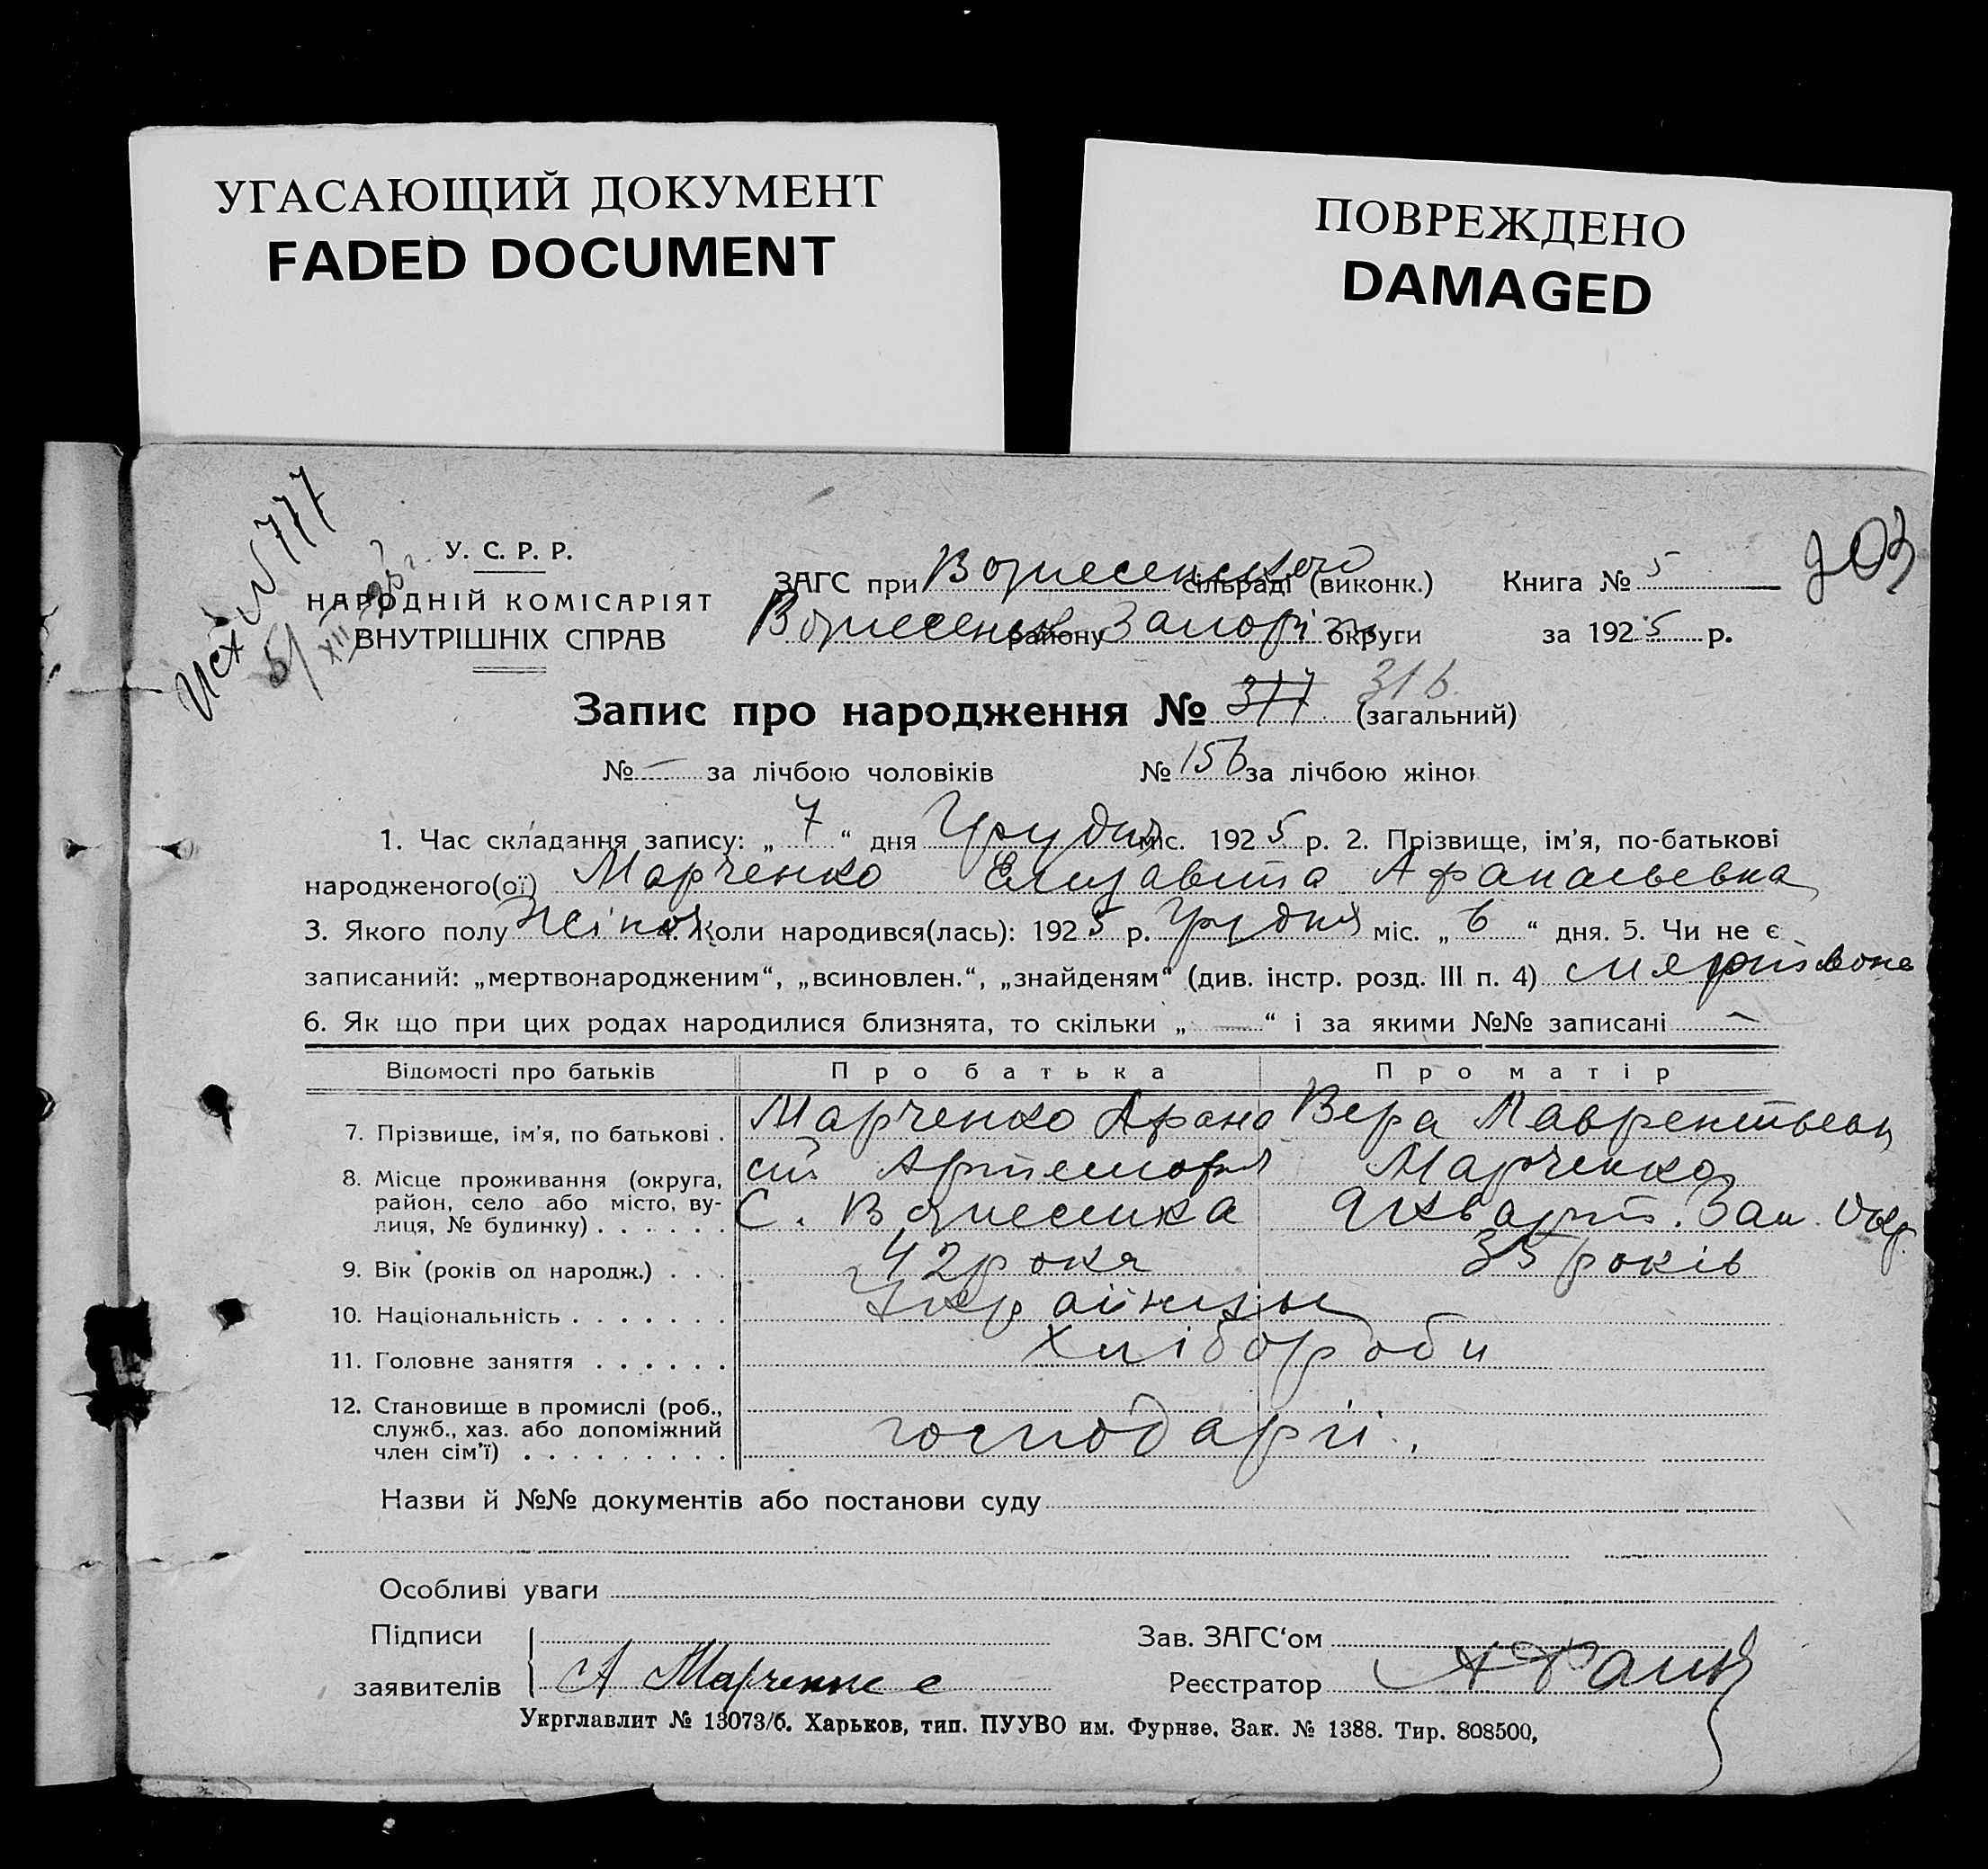 УГАСАЮЩИЙ ДОКУМЕНТ
FADED DOCUMENT
ПОВРЕЖДЕНО
DAMAGED
Исх N 777
У. С. Р. Р.
НАРОДНІЙ КОМІСАРІЯТ
ВНУТРІШНІХ СПРАВ
ЗАГС при Вознесенского сільраді (виконк.)
району Запоріз округи
Книга № 5
за 1925 р.
Запис про народження № 317 316 (загальний)
№ — за лічбою чоловіків № 156 за лічбою жінок
1. Час складання запису: „ 7 “ дня Грудня міс. 1925 р. 2. Прізвище, ім'я, по-батькові
народженого(ої) Марченко Елизавита Афанасьевна
3. Якого полу Жіноч 4. Коли народився(лась): 1925 р. Грудня міс. „ 6 “ дня. 5. Чи не є
записаний: „мертвонародженим“, „всиновлен.“, „знайденям“ (див. інстр. розд. III п. 4)
6. Як що при цих родах народилися близнята, то скільки „ — “ і за якими №№ записані —
Відомості про батьків Про батька Про матір
7. Прізвище, ім'я, по батькові . Марченко Афана Вера Лаврентьевн
сій Марченко
8. Місце проживання (округа, район, село або місто, вулиця, № будинку) . . . . . . С. Вознесенка Зап. Окр.
9. Вік (років од народж.) . . . 42 рокя 35 років
10. Національність . . . . . . . Украйнцы
11. Головне заняття . . . . . . Хлібороби
12. Становище в промислі (роб., служб., хаз. або допоміжний член сім'ї) . . . . . . . . . господарі.
Назви й №№ документів або постанови суду
Особливі уваги
Підписи
заявителів А Марченко
Зав. ЗАГС‘ом
Реєстратор
Укрглавлит № 13073/б. Харьков, тип. ПУУВО им. Фурнзе. Зак. № 1388. Тир. 808500,